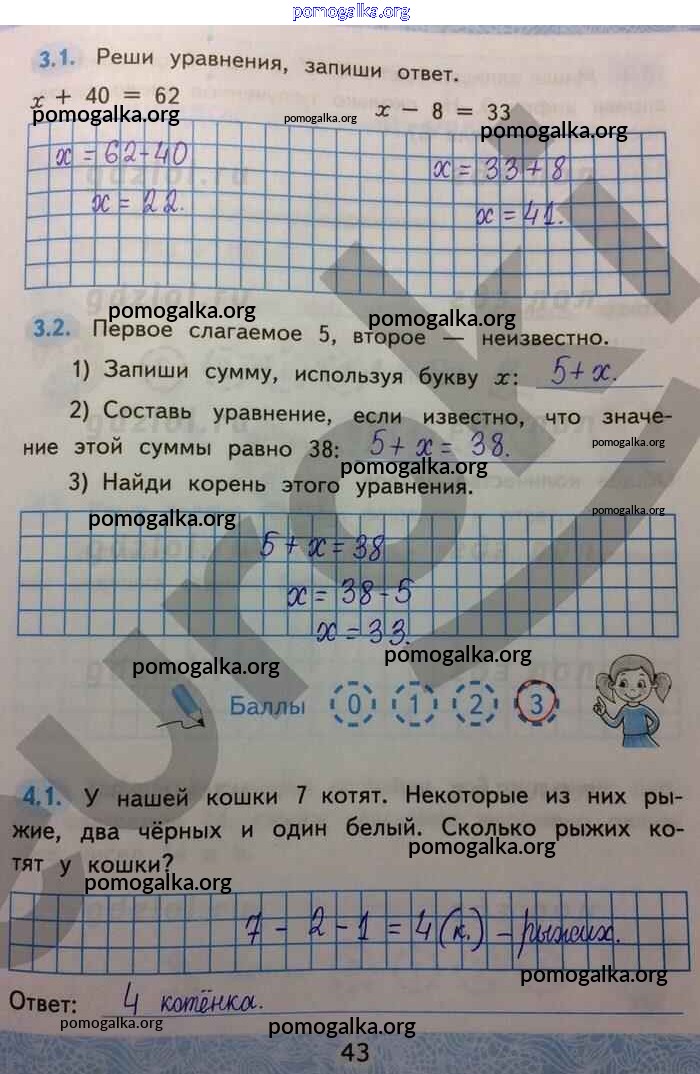 pomogalka.org
3.1. Реши уравнения, запиши ответ.
x + 40 = 62
x − 8 = 33
pomogalka.org pomogalka.org pomogalka.org
x = 62-40
x = 33+8
x = 22.
x = 41.
pomogalka.org pomogalka.org
3.2. Первое слагаемое 5, второе — неизвестно.
1) Запиши сумму, используя букву x: 5+x.
2) Составь уравнение, если известно, что значе-
ние этой суммы равно 38: 5+x = 38.
pomogalka.org
pomogalka.org
3) Найди корень этого уравнения.
pomogalka.org pomogalka.org
5+x=38
x= 38-5
x=33.
pomogalka.org pomogalka.org
Баллы 0 1 2 3
4.1. У нашей кошки 7 котят. Некоторые из них ры-
жие, два чёрных и один белый. Сколько рыжих ко-
pomogalka.org
тят у кошки?
pomogalka.org
7 - 2 - 1 = 4 (к.) - рыжих.
pomogalka.org
Ответ: 4 котёнка.
pomogalka.org pomogalka.org
43